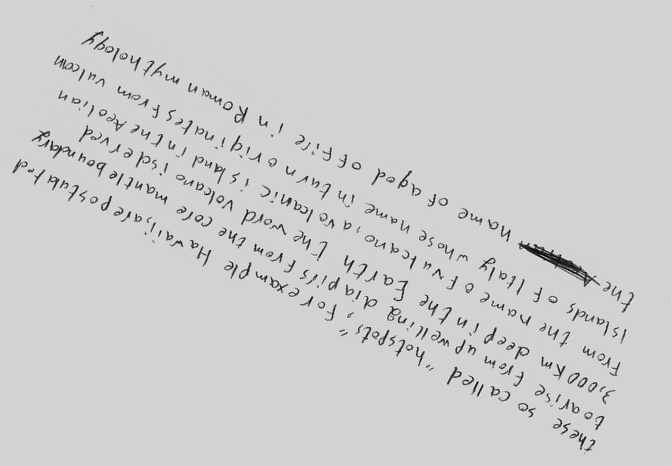 these so called "hotspots", for example Hawaii, are postulated
toarise from upwelling diapirs from the core mantle boundary
3,000 km deep in the Earth [ the word volcano isderved
from the name of vulcano, a volcanic island in the Aeolian
islands of Italy whose name in turn originates from vulcan
the name of aged of fire in Roman mythology